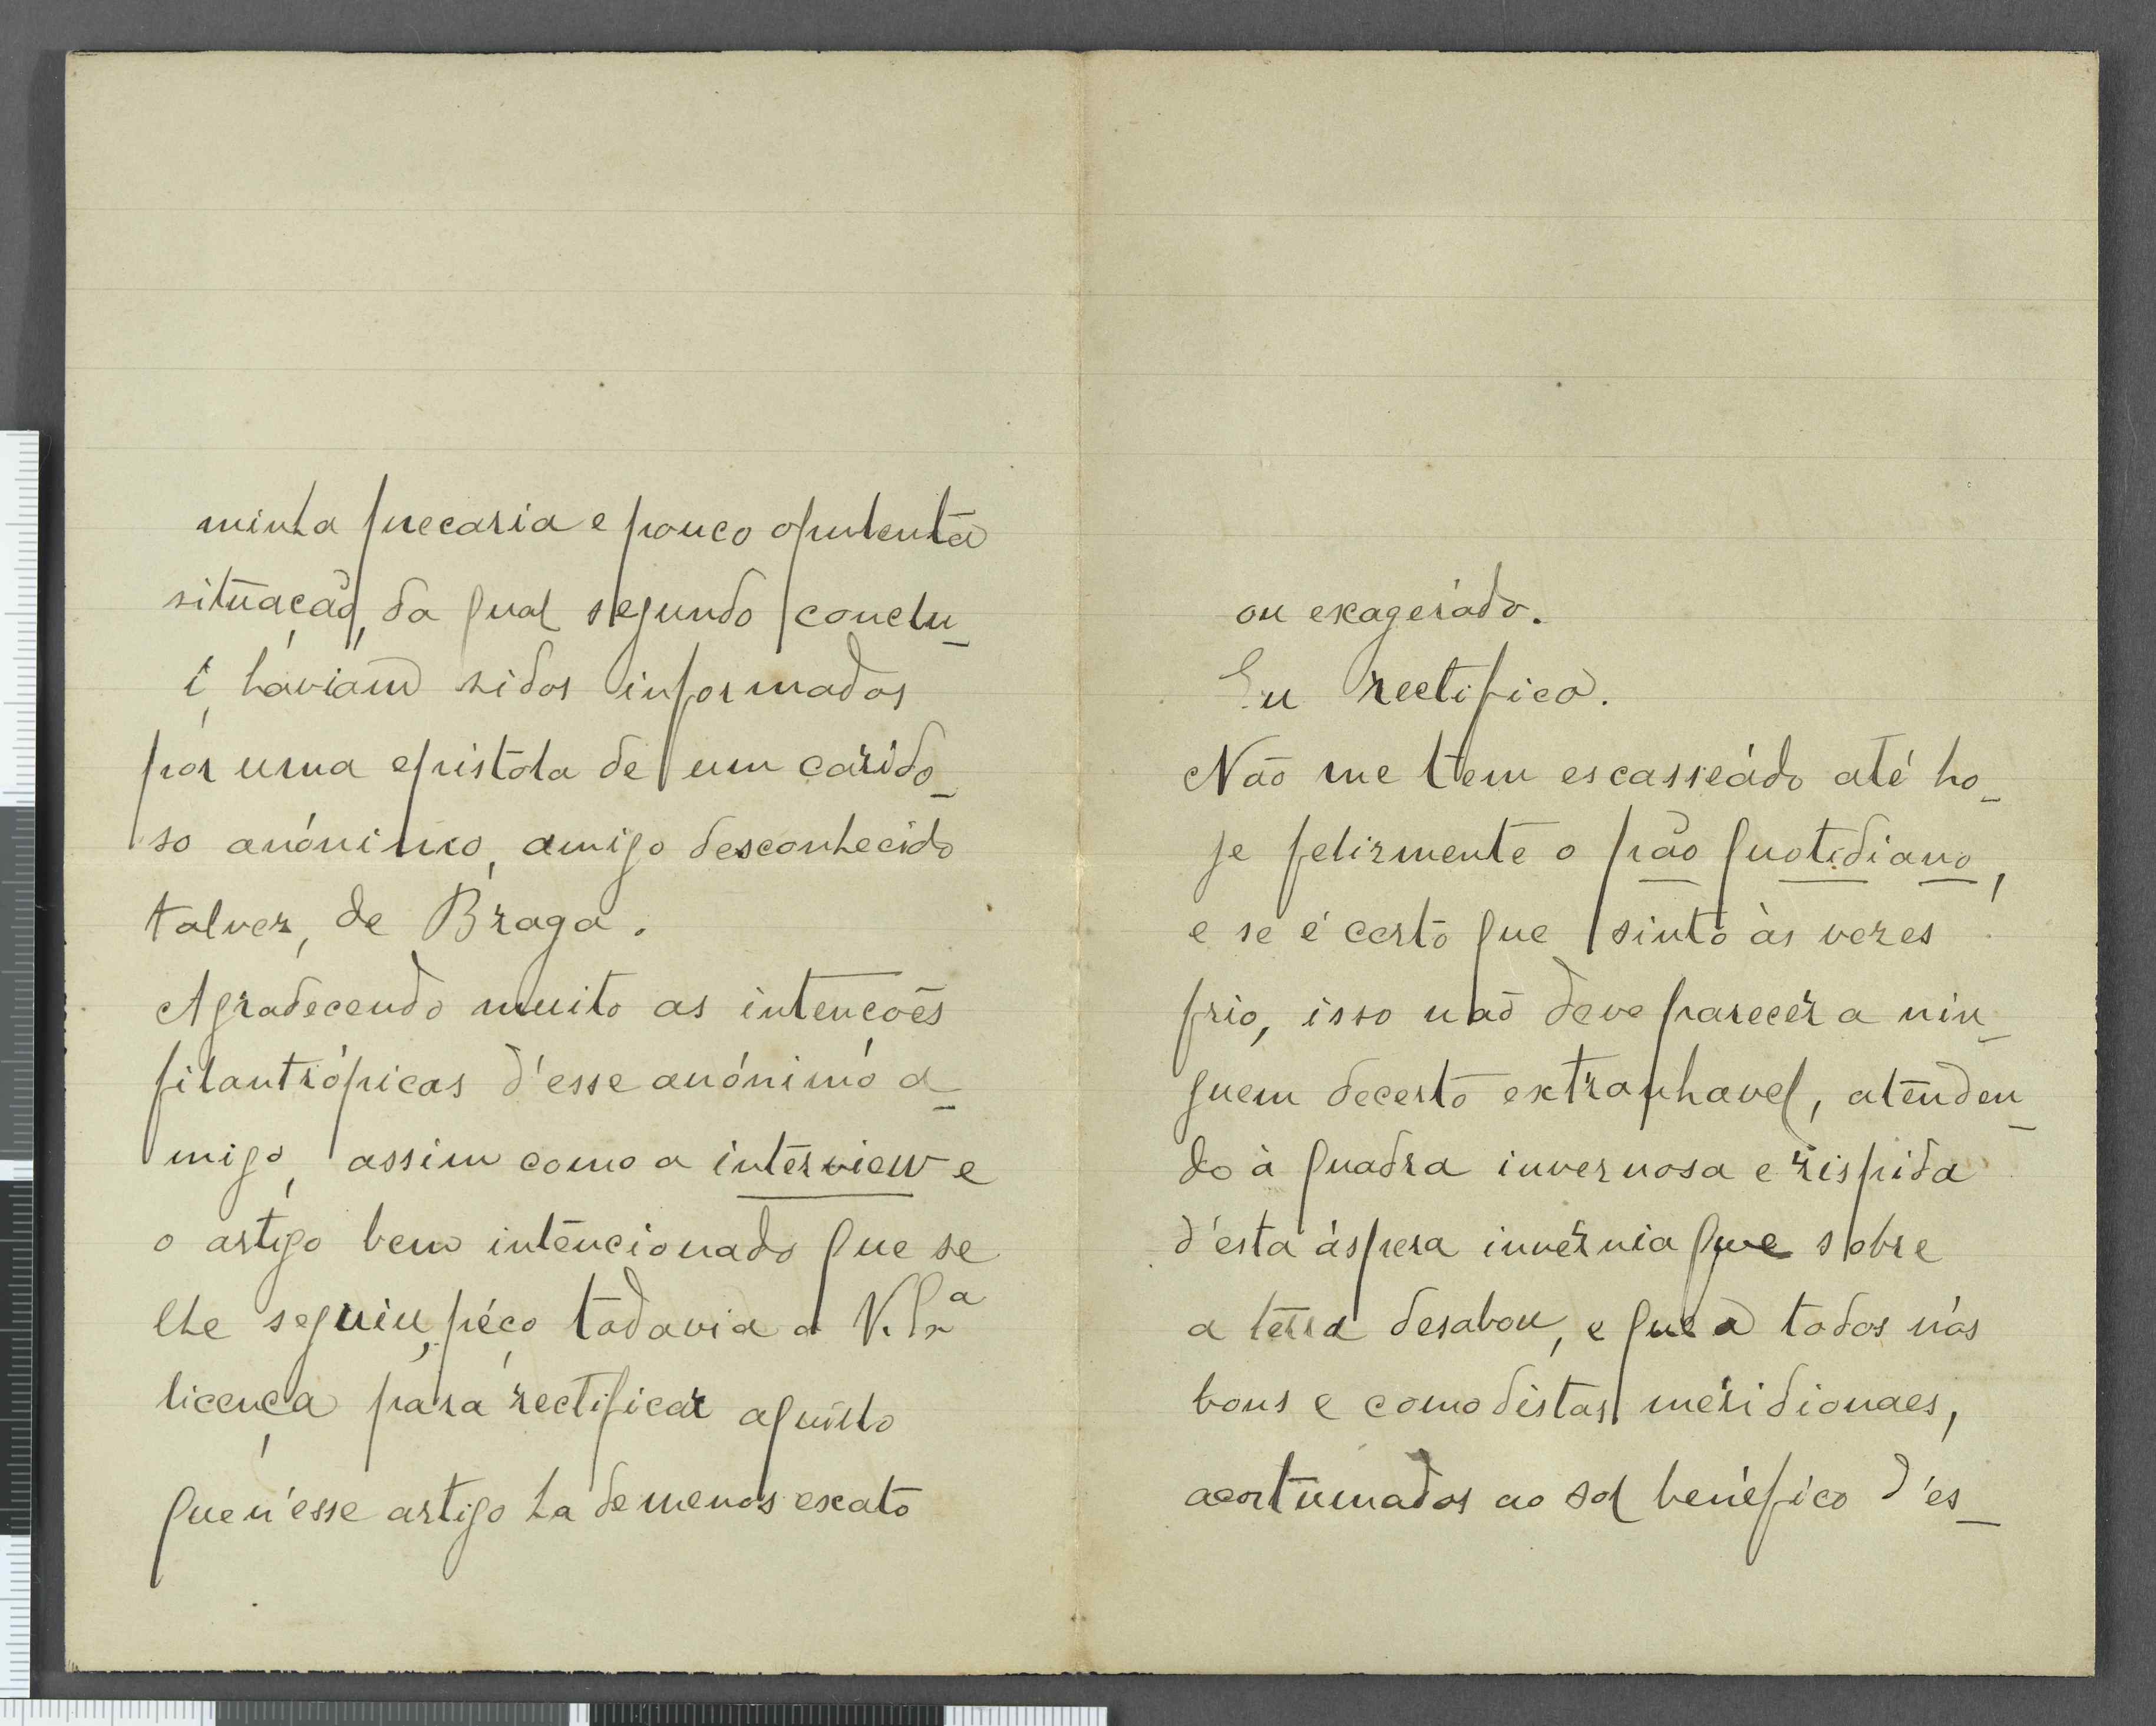 minha precaria e pouco opulenta
situação, da qual segundo conclu-
i, haviam sidos informados
por uma epistola de um carido-
so anónimo, amigo desconhecido
talvez, de Braga.
Agradecendo muito as intenções
filantrópicas d'esse anónimo a-
migo, assim como a interview e
o artigo bem intencionado que se
lhe seguiu, péço todavia a V. Sr.ª
licença para rectificar aquillo
que n'esse artigo ha de menos exato
ou exagerádo.
Eu rectifico.
Não me tem escasseádo até ho-
je felizmente o pão quotidiano,
e se é certo que sinto às vezes
frio, isso não deve parecer a nin-
guem decerto extranhavel, atenden-
do à quadra invernosa e rispida
d'esta áspera invérnia que sobre
a terra desabou, e que a todos nós
bons e comodistas meridionaes,
acostumados ao sol benéfico d'es-